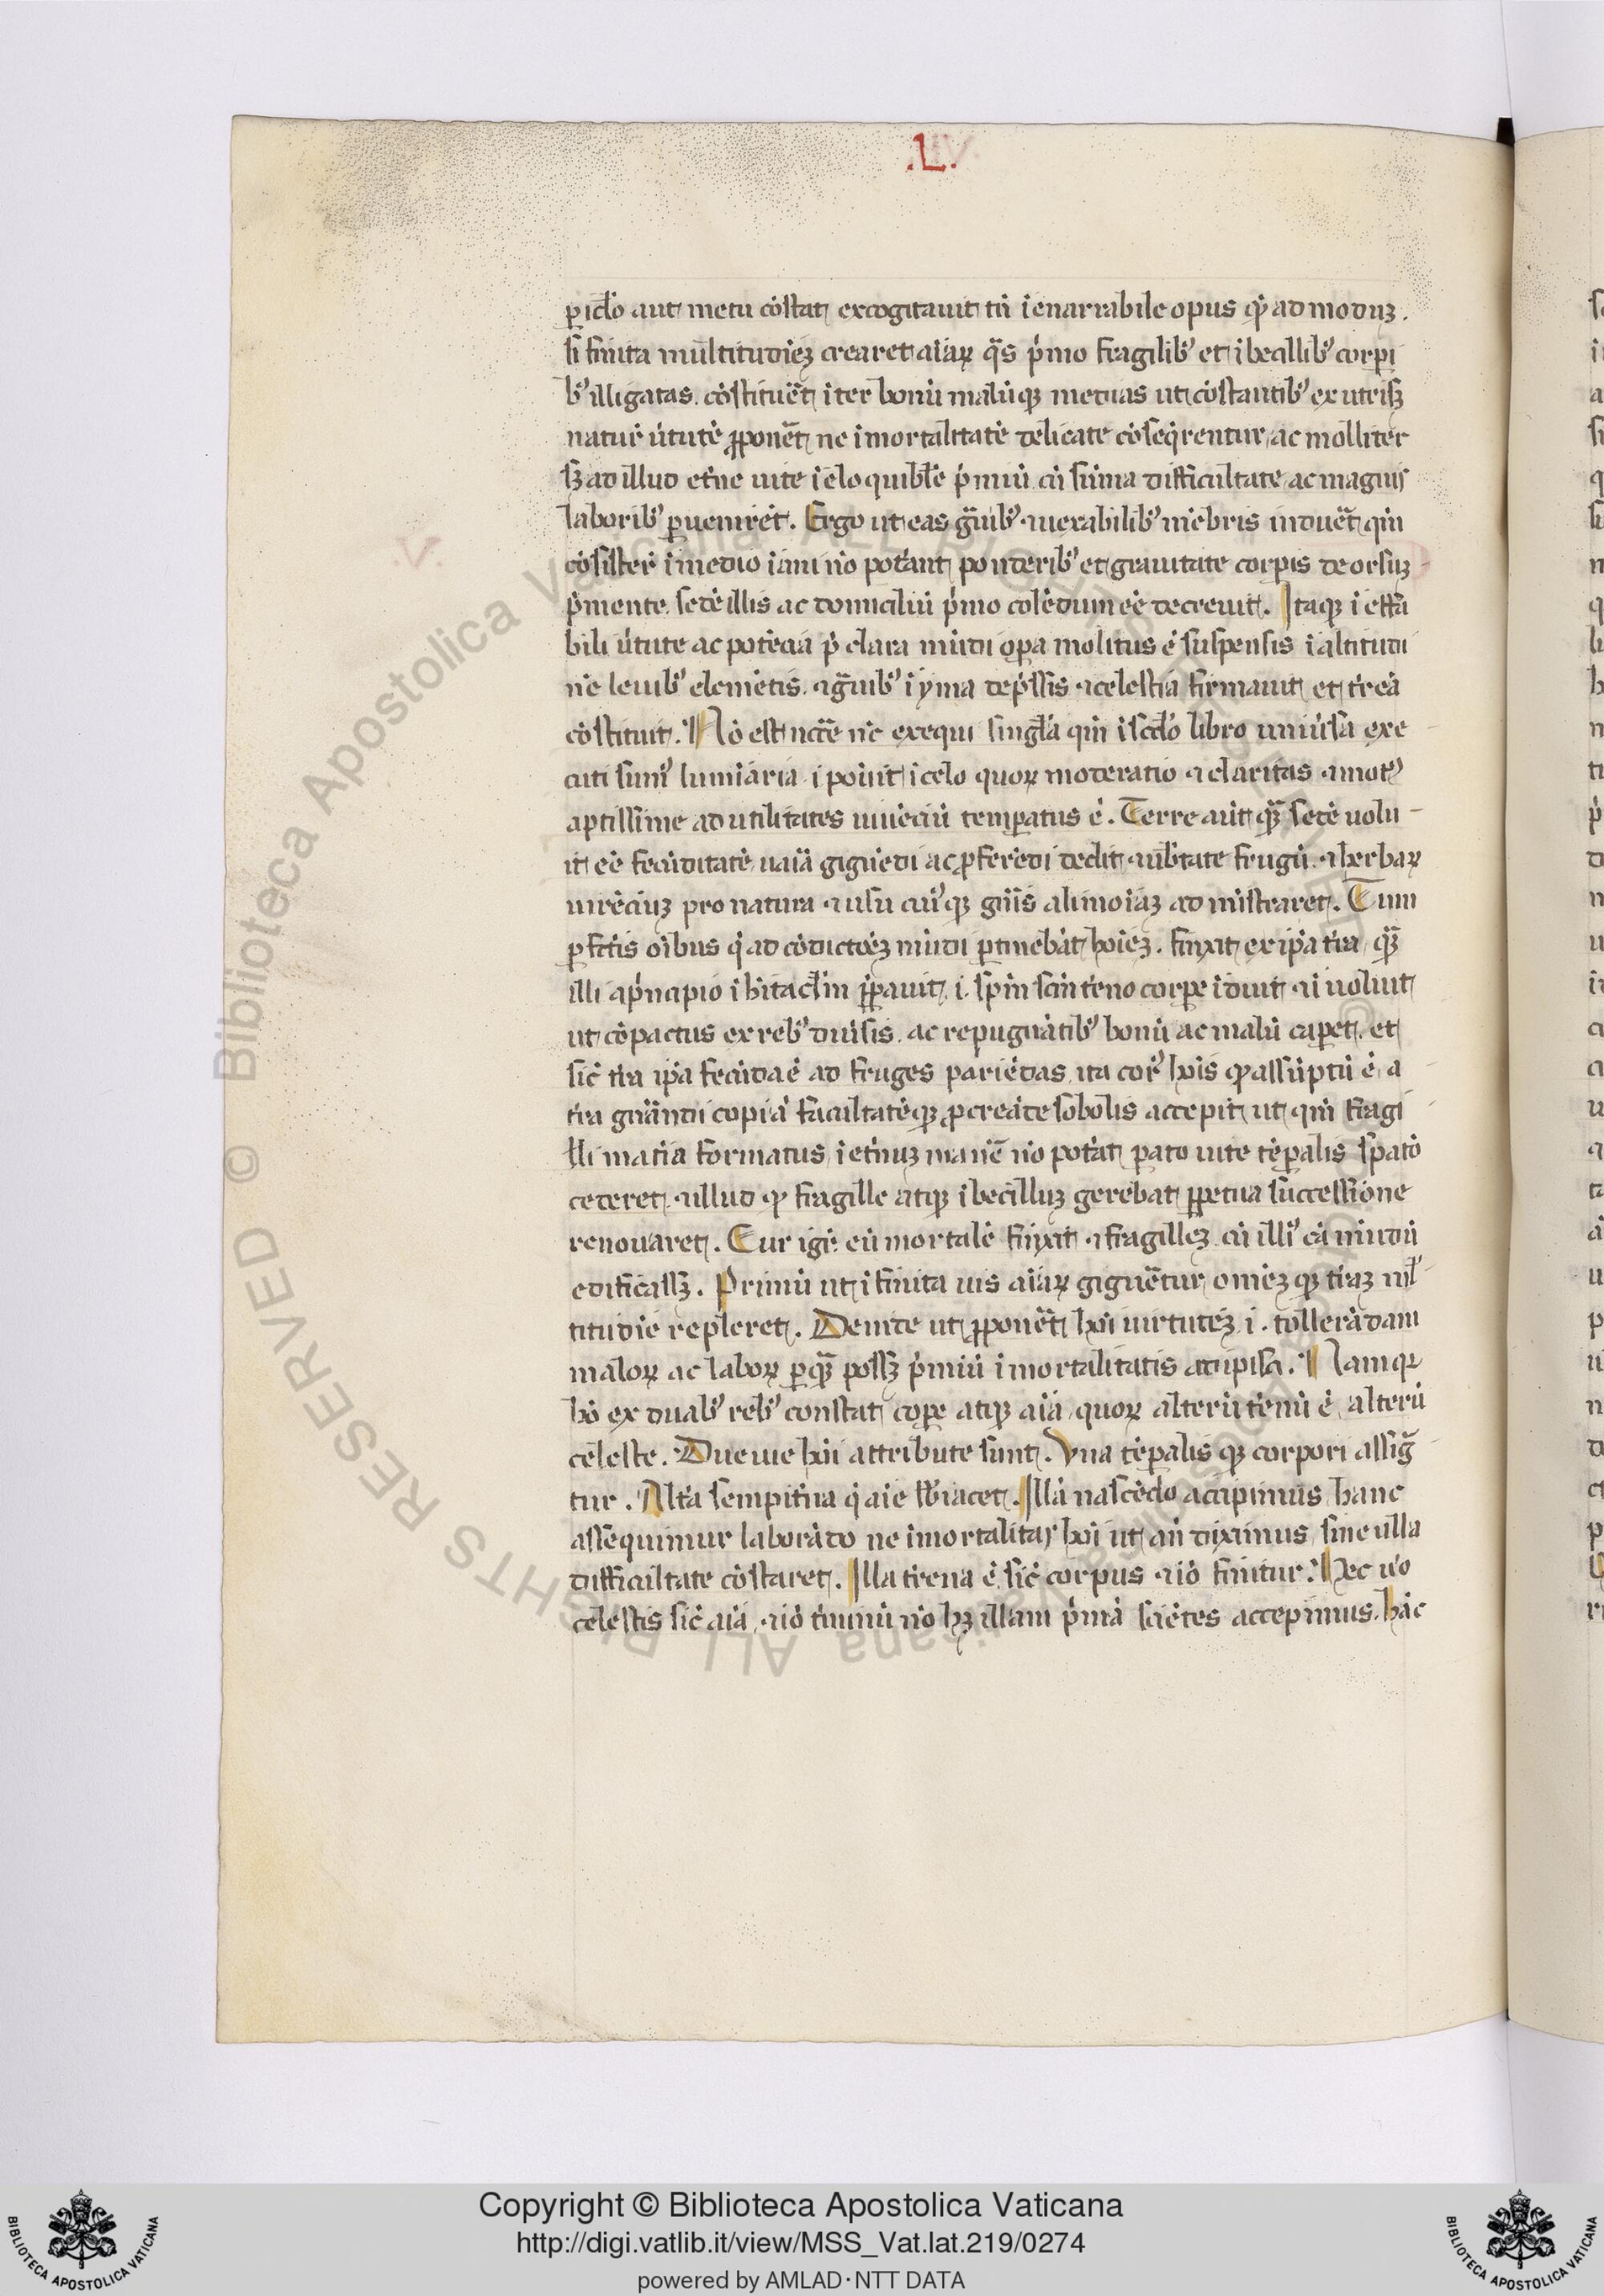 .L.
ꝑicl̄o aut metu cōstat excogitauit tn̄ īenarrabile opus qͥ̄ ad moduꝫ .
īfinita multitudīeꝫ crearet aīaꝝ q̄s pͥmo fragilibꝰ et ībecillibꝰ corꝑi
bꝰ illigatas. cōstitu͛et īter bonū malūqꝫ medias ut cōstantibꝰ ex utrisqꝫ
natur̄ uͥtutē ꝓpon͛et ne īmortalitatē delicate cōseqͥrentur ac molliter
sꝫ ad illud et͛ne uite īeloquibl̄e pͥmiū cū sūma difficultate ac magnis
laboribꝰ ꝑuenirēt. Ergo ut eas gͣuibꝰ ⁊ uexabilibꝰ mēbris indu͛et qm̄
cōsister̄ ī medio iani nō pot͛ant ponderibꝰ et grauitate corꝑis deorsuꝫ
pͥmente. sedē illis ac domiciliū pͥmo colēdum eē decreuit. Itaqꝫ ī effā
bili uͥtute ac potēcia p̄clara mūdi oꝑa molitus ē suspensis ī altitudi
nē leuibꝰ elemētis. ⁊ gͣuibꝰ ī yma dep͛ssis ⁊ celestia firmauit et t͛rēa
cōstituit. Nō est ncc̄e nc̄ exequi singl̄a qm̄ ī scd̄o libro uniu͛sa exe
cuti sumꝰ lumīaria īpo͛uit ī celo quoꝝ moderatio ⁊ claritas ⁊ motꝰ
aptissime ad utilitates uiuēciū temꝑatus ē. Terre aūt qͣ̄ sedē uolu
it eē fecūditatē uaīa gignēdi ac ꝓferēdi dedit ⁊ ub͛tate frugū. ⁊ herbaꝝ
uirēciuꝫ pro natura ⁊ usu cuiꝰqꝫ gn̄is alimoīaꝫ ad mīstraret. Tum
ꝑfctīs oībus q̄ ad cōdictōeꝫ mūdi ꝑtinebāt hoīeꝫ. finxit ex ip̄a t͛ra. qͣ̄
illi a pͥncipio ī hītacl̄m ꝑꝑauit. i. spm̄ scm̄ t͛reno corꝑe īduit ⁊ īuoluit
ut cōpactus ex rebꝰ diu͛sis. ac repugnātibꝰ bonū ac malū caꝑet. et
sic̄ t͛ra ip̄a fecūda ē ad fruges pariēdas ita corꝰ hoīs qͥ̄ assūptū ē a
t͛ra gn̄andi copiā facultatēqꝫ ꝓcreāde sobolis accepit ut qm̄ fragi
lli mat͛ia formatus ī et͛nuꝫ man͛e nō pot͛at ꝑato uite tēꝑalis spatō
cederet ⁊ illud qͥ̄ fragille atqꝫ ībecilluꝫ gerebat ꝑꝑetua successione
renouaret. Cur igr̄ eū mortalē finxit ⁊ fragilleꝫ cū illiꝰ cā mūdū
edificassꝫ. Primū ut īfinita uis aīaꝝ gign͛etur omēꝫqꝫ t͛raꝫ ml̄
titudīe repleret. Deinde ut ꝓpon͛et hoī uirtuteꝫ. i. tollerādam
maloꝝ ac laboꝝ ꝑ qͣ̄ possꝫ pͥmiū īmortalitatis adipisci. Nam qꝫ
hō ex duabꝰ rebꝰ constat corꝑe atqꝫ aīa. quoꝝ alterū t͛renū ē. alterū
celeste. Due uie hoī attribute sunt. Vna tēꝑalis qꝫ corpori assigͣ
tur. Alt͛a sempit͛na qͥ aīe subiacet. Illā nascēdo accipimus. hanc
assequimur laborādo ne īmortalitas hoī ut an̄ diximus sine ulla
difficultate cōstaret. Illa t͛rena ē sic̄ corpus ⁊ iō finitur. Hec uͦo
celestis sic̄ aīa. ⁊ iō t͛minū nō hꝫ illam pͥmā sciētes accepimus. hāc
Copyright © Biblioteca Apostolica Vaticana
http://digi.vatlib.it/view/MSS_Vat.lat.219/0274
powered by AMLAD·NTT DATA